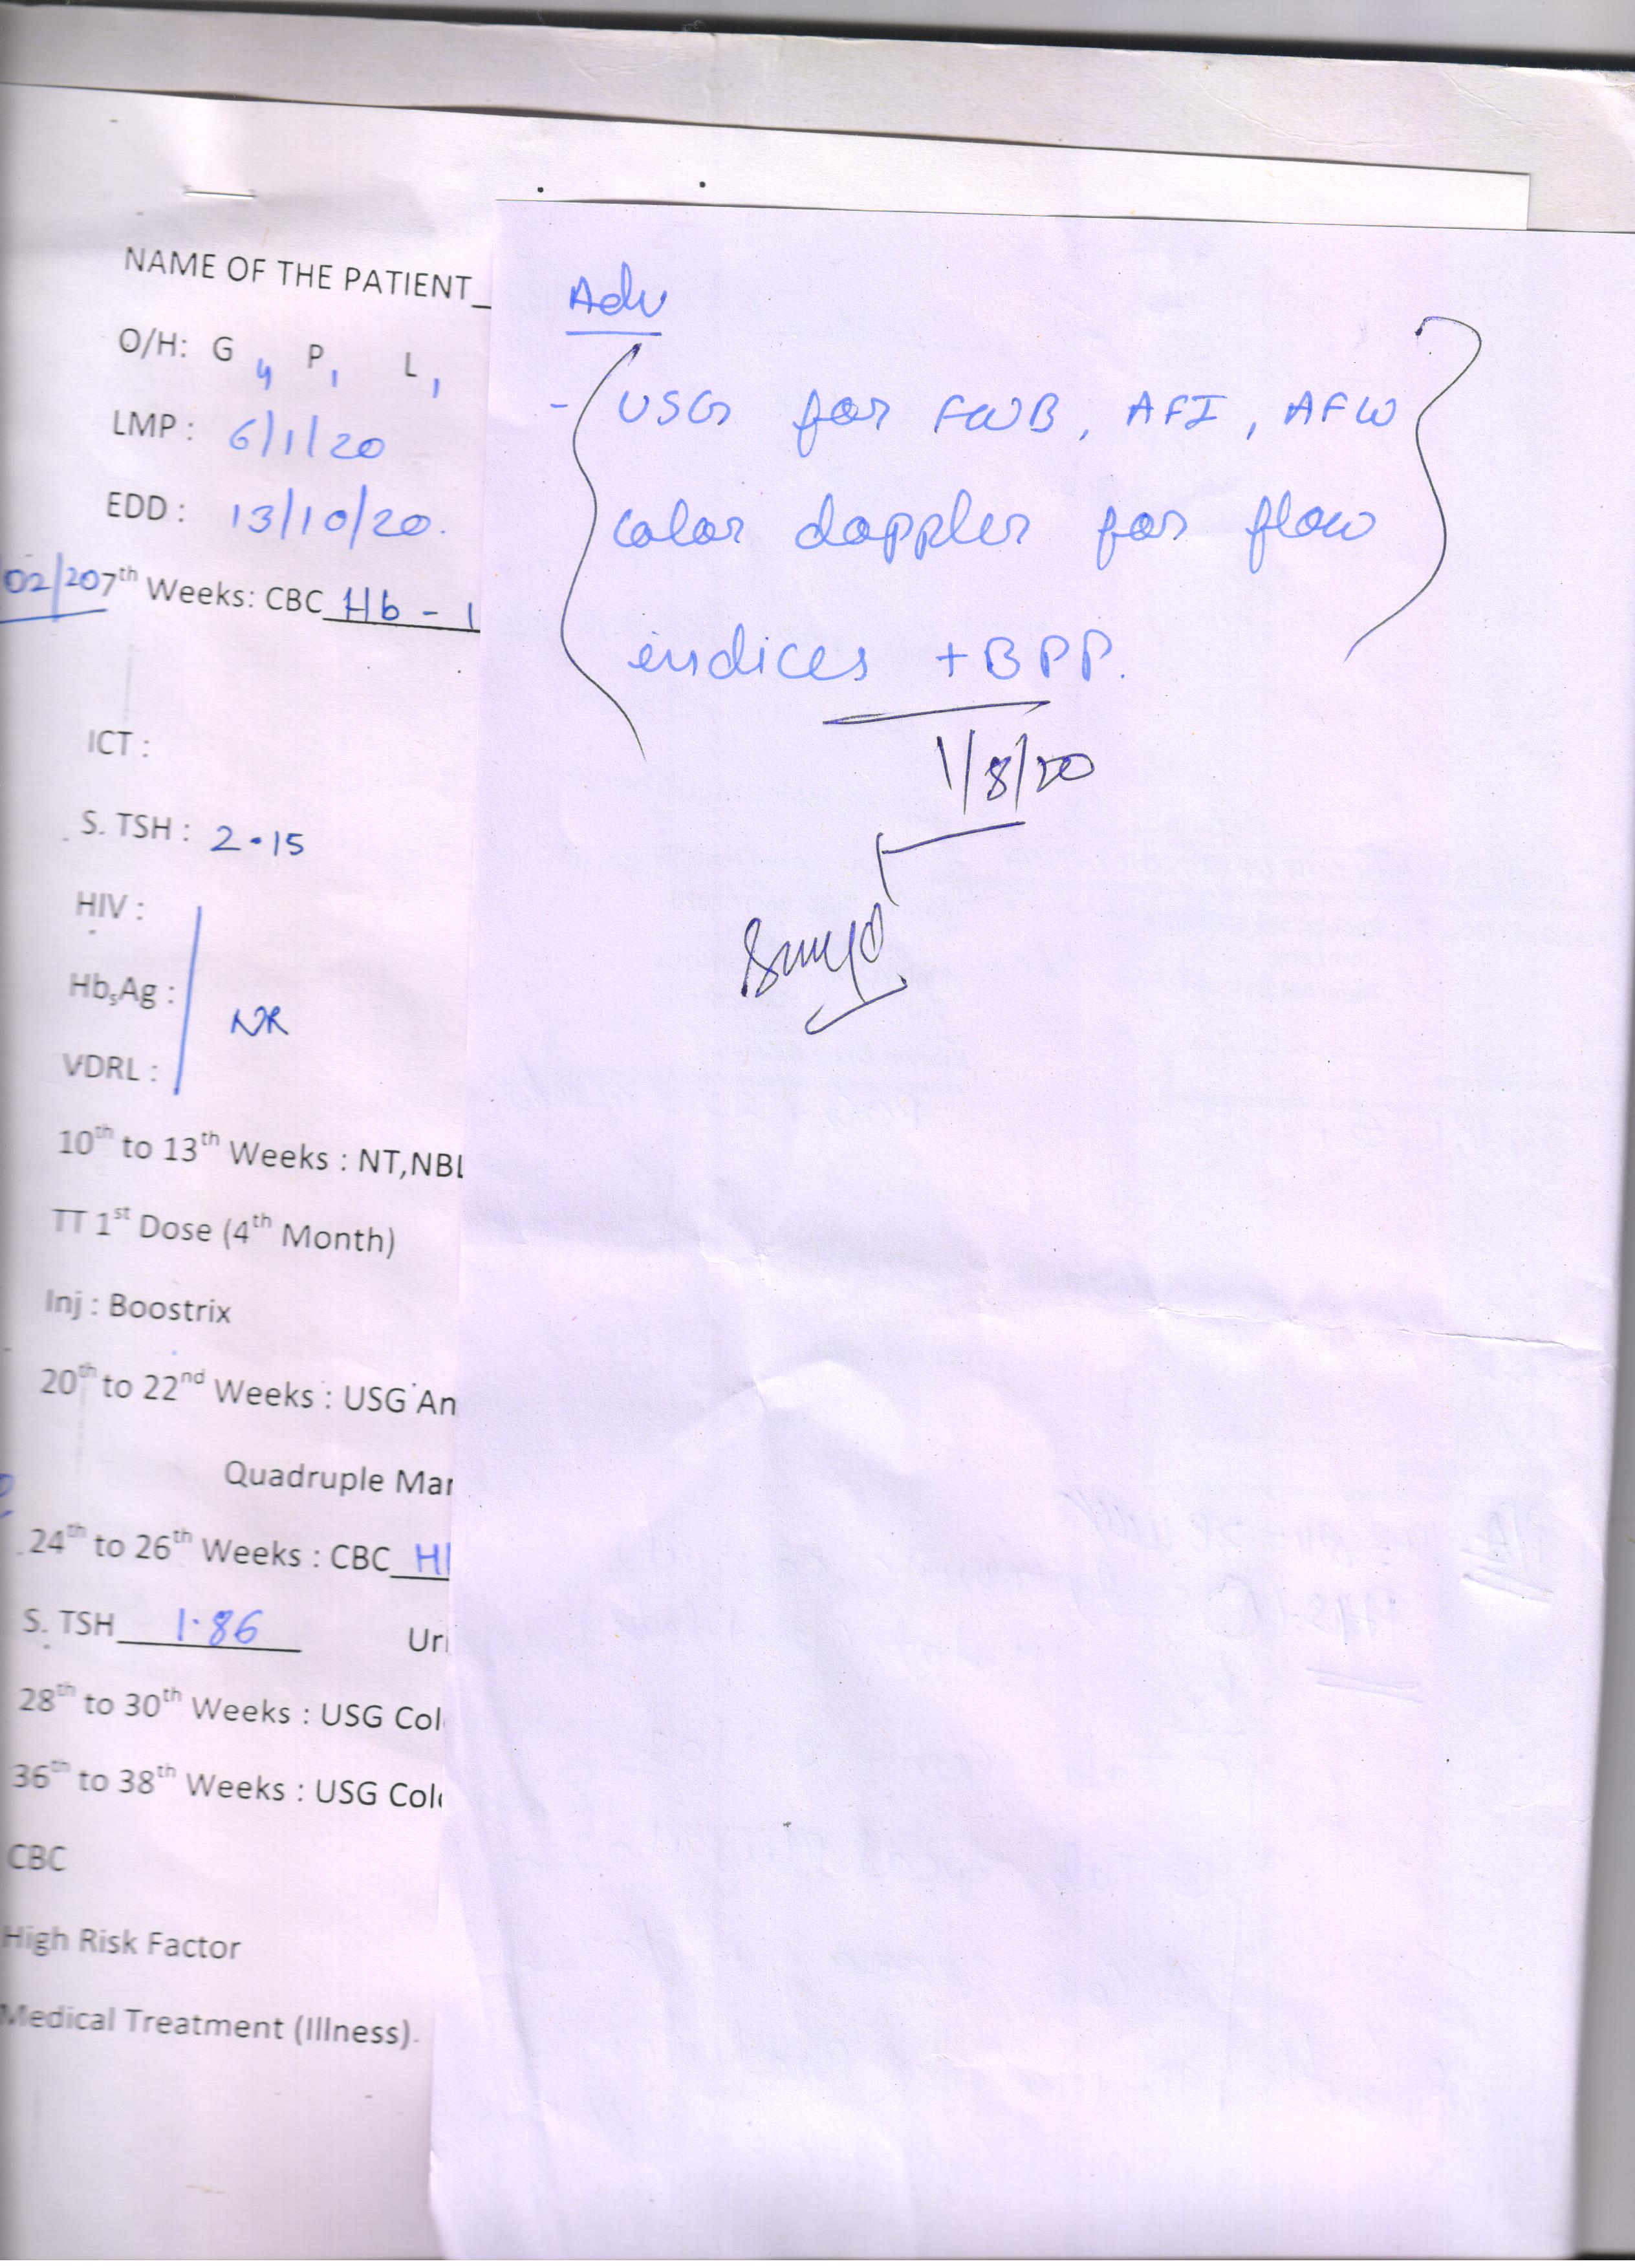 NAME OF THE PATIENT_
O/H: G 4 P 1 L 1
LMP : 6/1/20
EDD : 13/10/20.
02/20 7th Weeks: CBC Hb - 1
ICT :
S. TSH : 2.15
HIV :
HbsAg : NR
VDRL :
10th to 13th Weeks : NT,NBL
TT 1st Dose (4th Month)
Inj : Boostrix
20th to 22nd Weeks : USG An
Quadruple Mar
24th to 26th Weeks : CBC H
S. TSH 1.86 Uri
28th to 30th Weeks : USG Col
36th to 38th Weeks : USG Col
CBC
High Risk Factor
Medical Treatment (Illness).
Adv
- USG for FWB, AFI, AFW
color doppler for flow
indices + BPP.
1/8/20